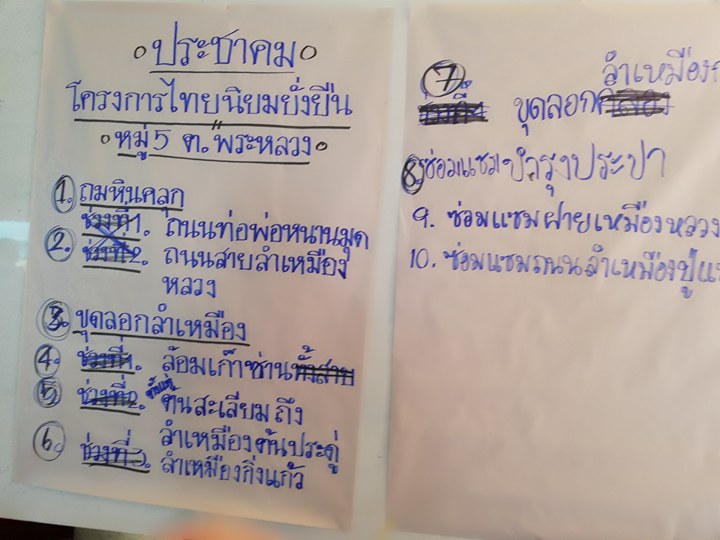 ประชาคม
โครงการไทยนิยมยั่งยืน
หมู่ 5 ต. พระหลวง
1. ถมหินคลุก
ช่วงที่ 1. ถนนท่อพ่อหนานมูด
2. ช่วงที่ 2. ถนนสายลำเหมือง
หลวง
3. ขุดลอกลำเหมือง
4. ช่วงที่ 1. ล้อมเก๊าซ่านทั้งสาย
5. ช่วงที่ 2. ตั้งแต่ ต้นสะเลียม ถึง
ลำเหมืองต้นประดู่
6. ช่วงที่ 3. ลำเหมืองกิ่งแก้ว
7. ขุดลอก ลำเหมือง
8. ซ่อมแซมบำรุงประปา
9. ซ่อมแซมฝายเหมืองหลวง
10. ซ่อมแซมถนนลำเหมืองปู่